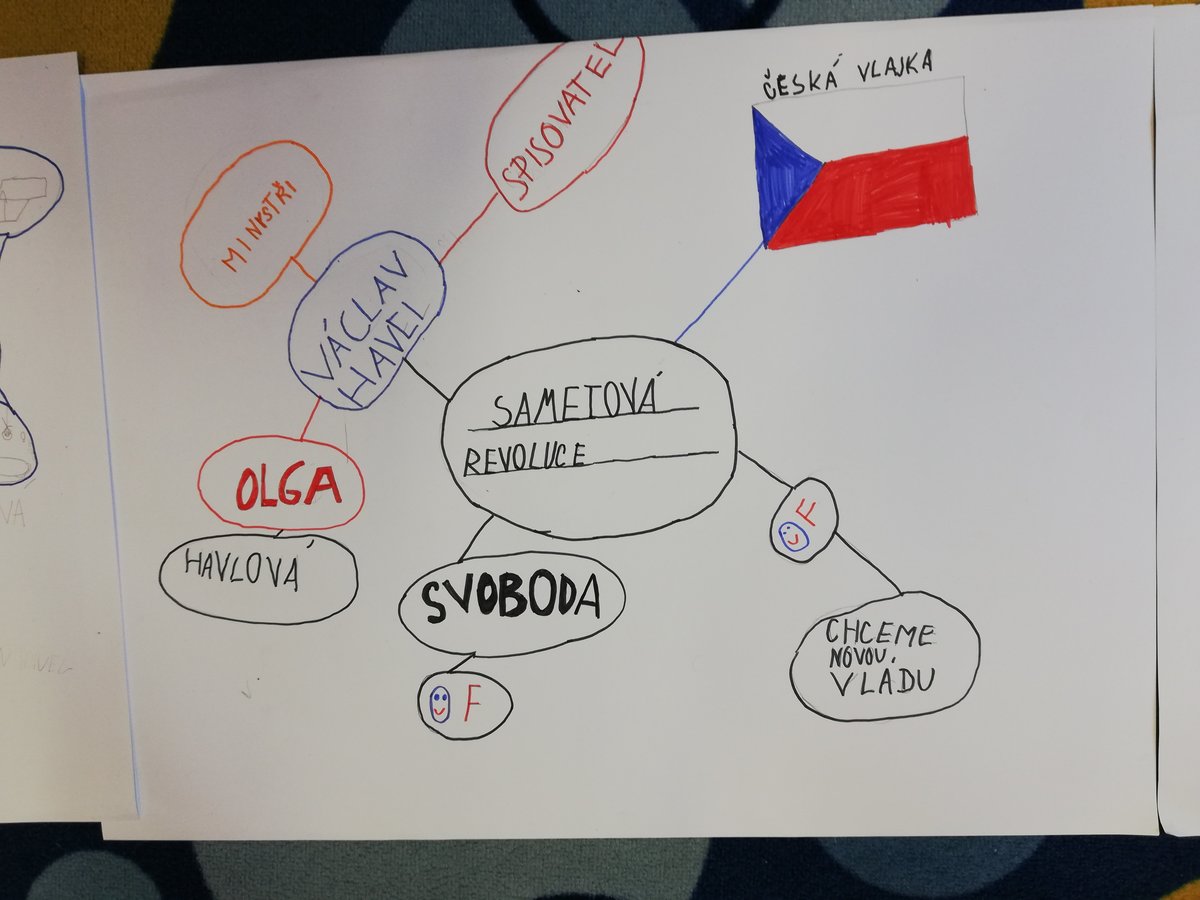 ČESKÁ VLAJKA
SPISOVATEL
MINISTŘI
VÁCLAV
HAVEL
SAMETOVÁ
REVOLUCE
OLGA
HAVLOVÁ
SVOBODA
F
F
CHCEME
NOVOU
VLÁDU
VA